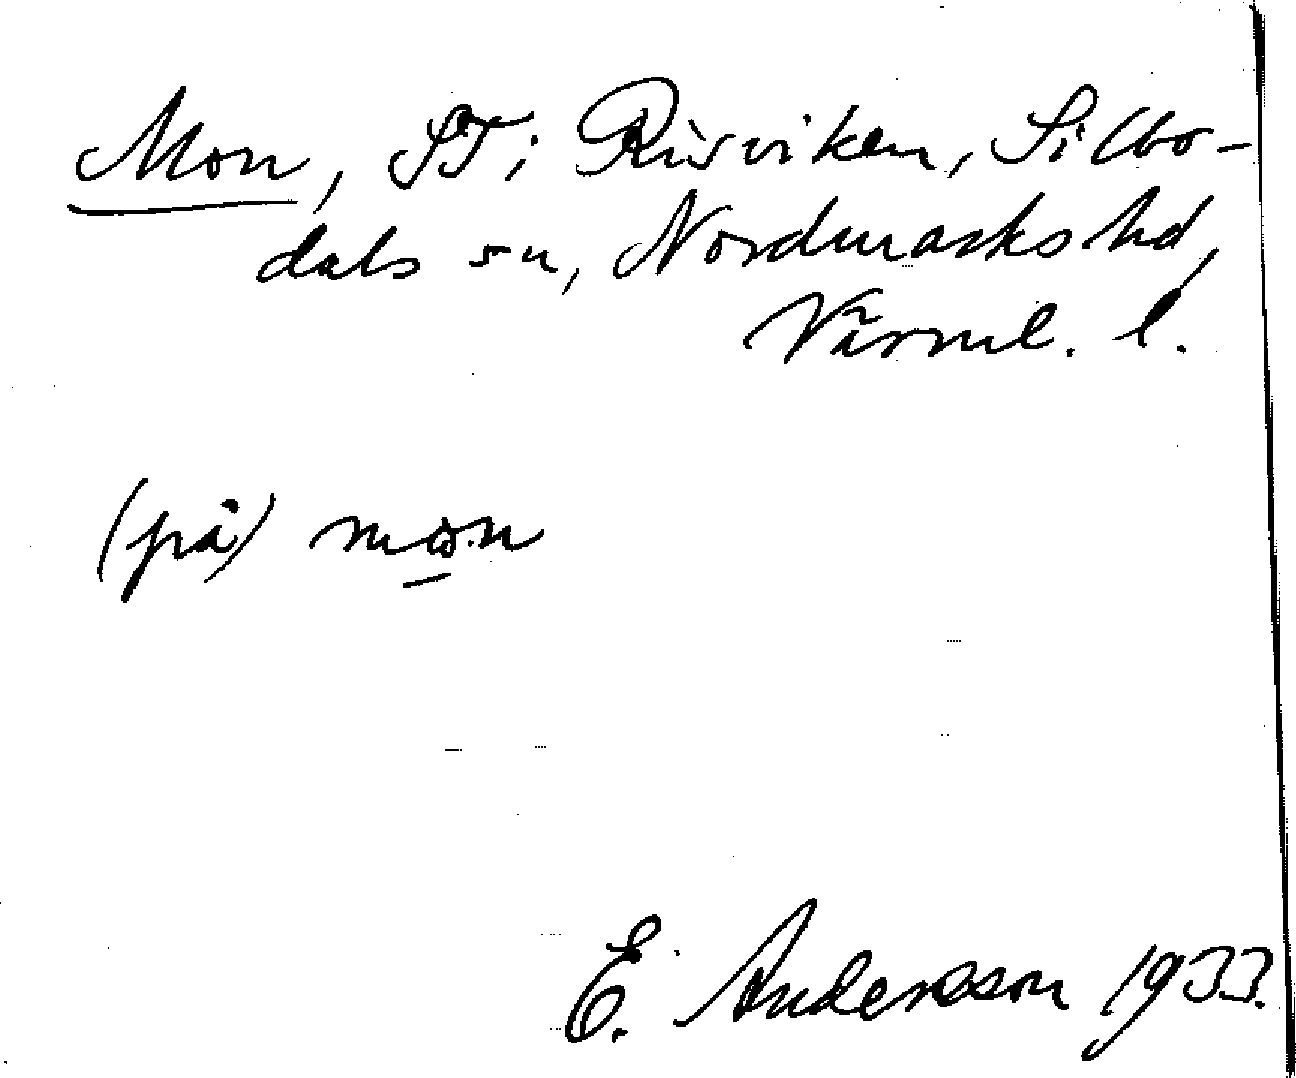 Mon, ST i Risviken, Silbo-
dals sn, Nordmarks hd,
Värml. l.
(på)
E. Andersson 1933.